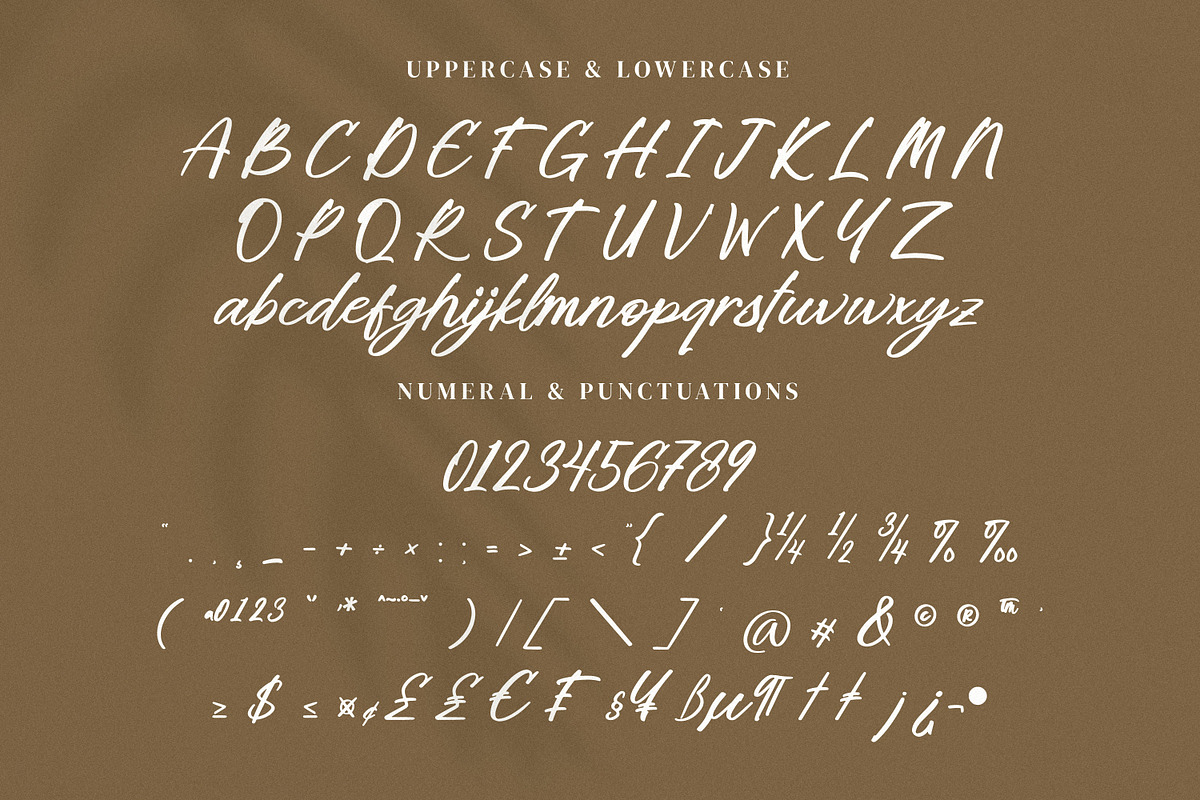 UPPERCASE & LOWERCASE
ABCDEFGHIJKLMN
OPQRSTUVWXYZ
abcdefghijklmnopqrstuvwxyz
NUMERAL & PUNCTUATIONS
0123456789
“ . , ¸ _ - + ÷ × : ; = > ± < ” { / } ¼ ½ ¾ % ‰
( a0123 * ) | [ \ ] ‘ @ # & © ® ™ ’
≥ $ ≤ ¤ ¢ £ € ₣ § ¥ ß µ ¶ † ‡ j ¿ ¬ •